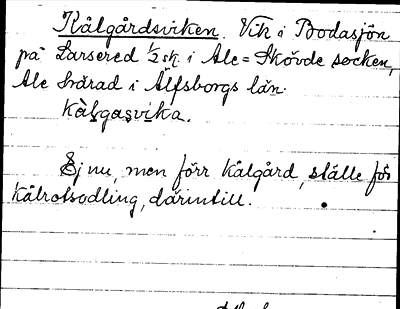 Kålgårdsviken. Vik i Bodasjön
på Larsered 1/2 sk. i Ale=Skövde socken,
Ale härad i Älfsborgs län.
kàlgasvika.
Ej nu, men förr kålgård, ställe för
kålrotsodling, därintill.